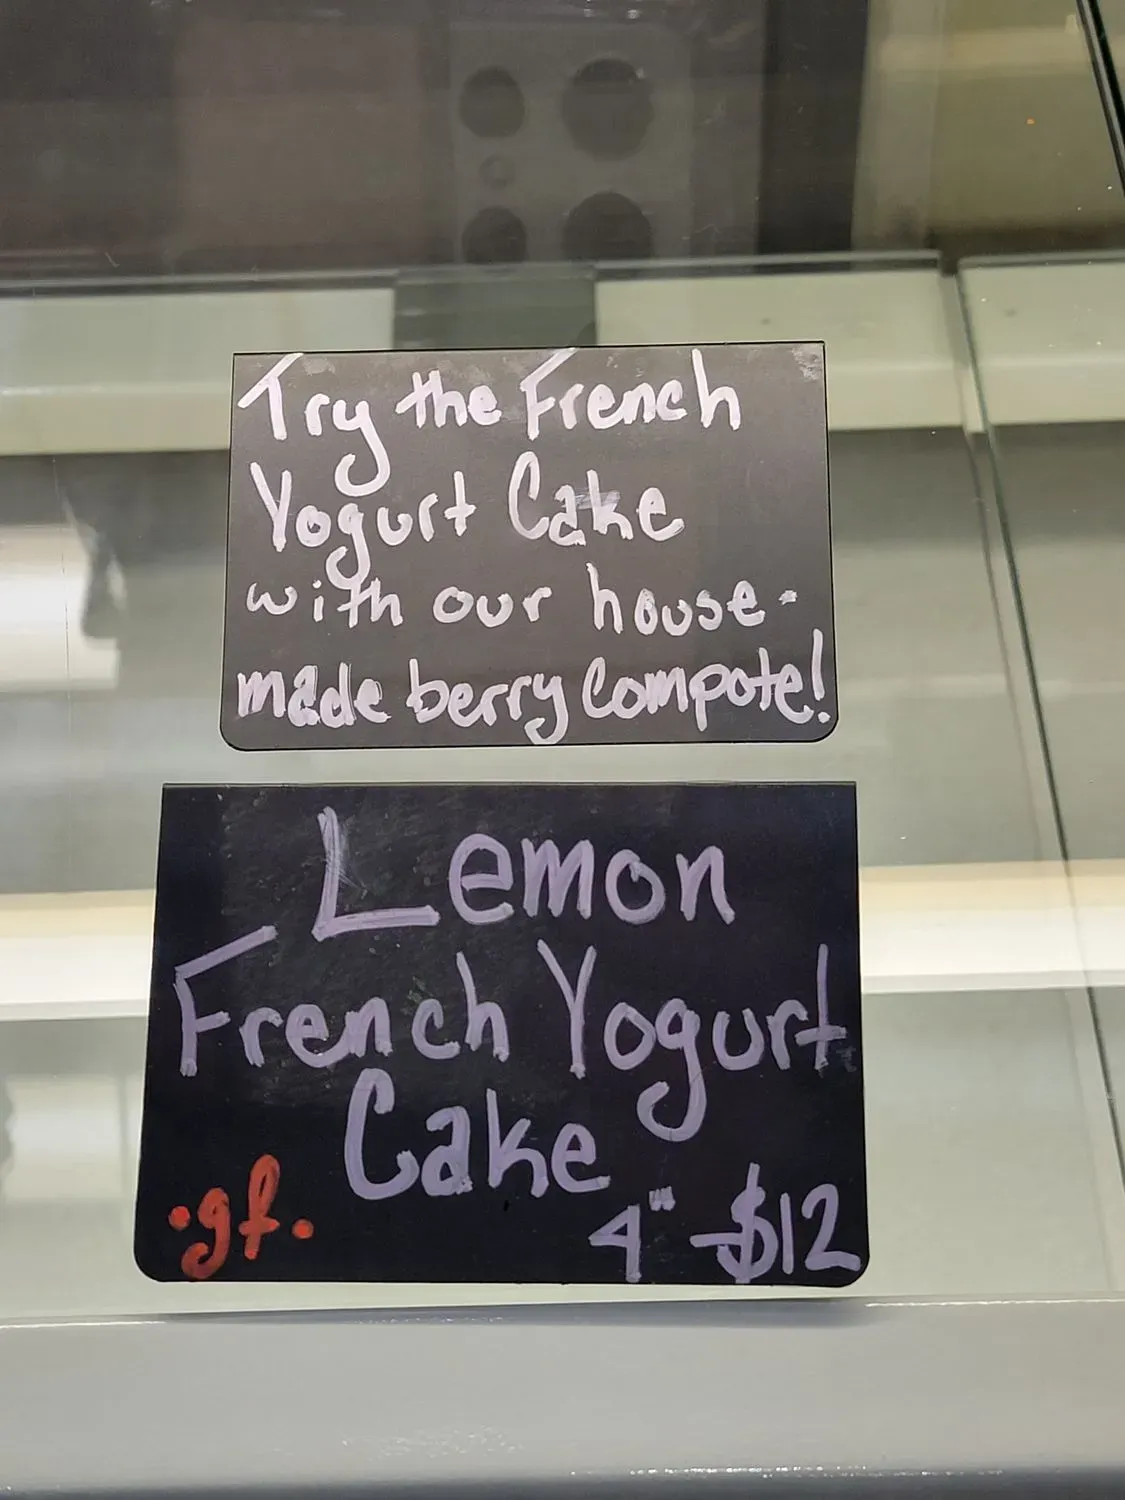 Try the French
Yogurt Cake
with our house-
made berry Compote!
Lemon
French Yogurt
Cake
·gf·
4" -$12